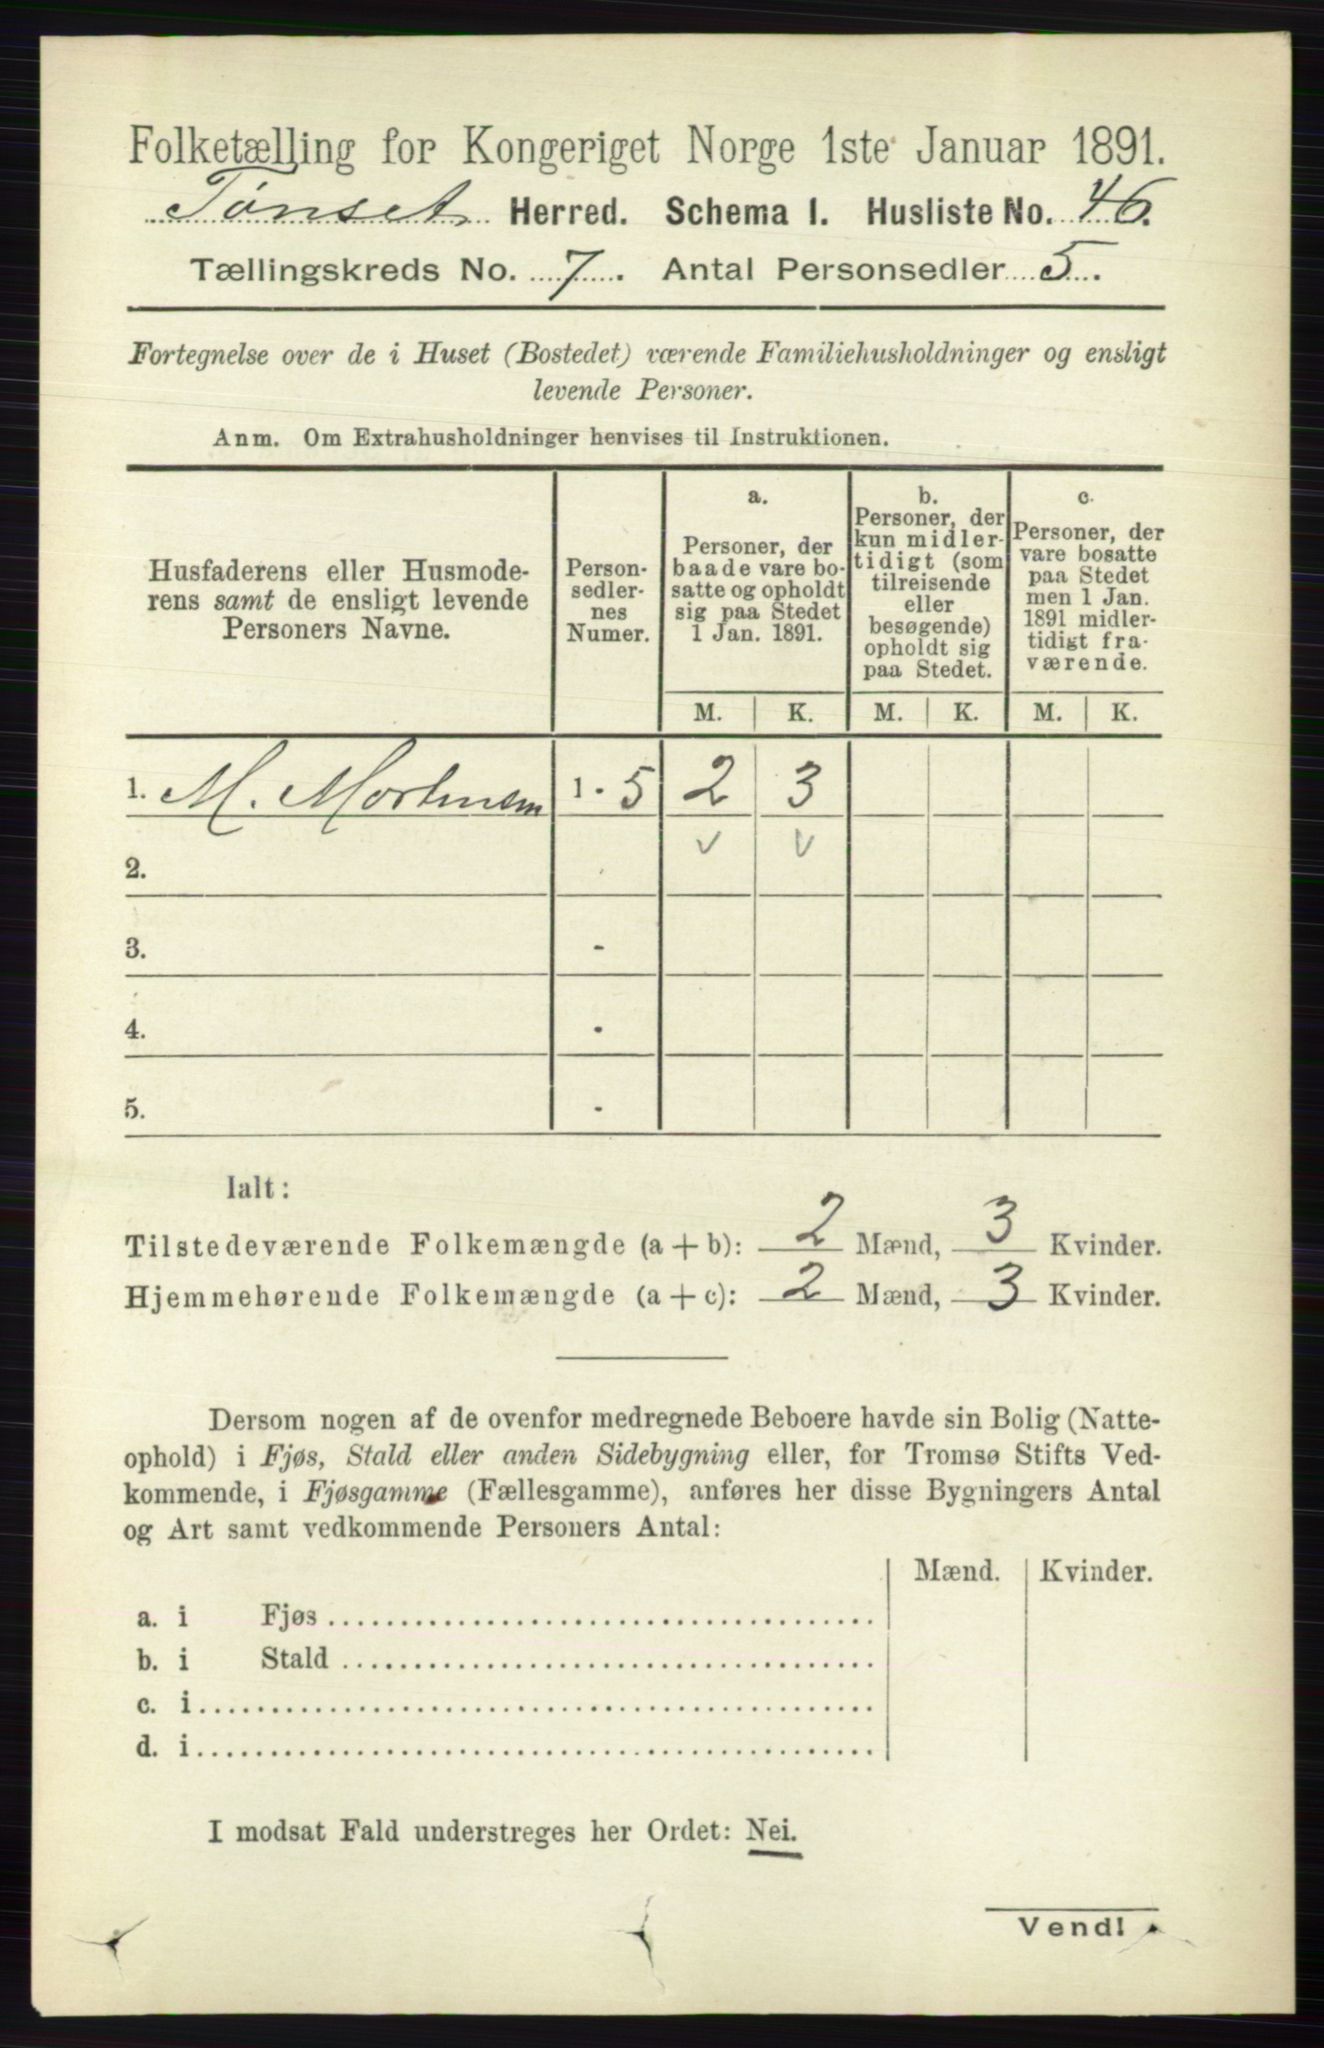 Folketælling for Kongeriget Norge 1ste Januar 1891.
Tønset Herred. Schema 1. Husliste No. 46.
Tællingskreds No. 7. Antal Personsedler 5.
Fortegnelse over de i Huset (Bostedet) værende Familiehusholdninger og ensligt
levende Personer.
Anm. Om Extrahusholdninger henvises til Instruktionen.
Husfaderens eller Husmode-
rens samt de ensligt levende
Personers Navne.
Person-
sedler-
nes
Numer.
a.
Personer, der
baade vare bo-
satte og opholdt
sig paa Stedet
1 Jan. 1891.
b.
Personer, der
kun midler-
tidigt (som
tilreisende
eller
besøgende)
opholdt sig
paa Stedet.
c.
Personer, der
vare bosatte
paa Stedet
men 1 Jan.
1891 midler-
tidigt fra-
værende.
M. K. M. K. M. K.
1. M. Mortensen 1 - 5 2 3
2.
3. -
4. -
5. -
Ialt:
Tilstedeværende Folkemængde (a + b): 2 Mænd, 3 Kvinder.
Hjemmehørende Folkemængde (a + c): 2 Mænd, 3 Kvinder.
Dersom nogen af de ovenfor medregnede Beboere havde sin Bolig (Natte-
ophold) i Fjøs, Stald eller anden Sidebygning eller, for Tromsø Stifts Ved-
kommende, i Fjøsgamme (Fællesgamme), anføres her disse Bygningers Antal
og Art samt vedkommende Personers Antal:
Mænd. Kvinder.
a. i Fjøs
b. i Stald
c. i
d. i
I modsat Fald understreges her Ordet: Nei.
Vend!